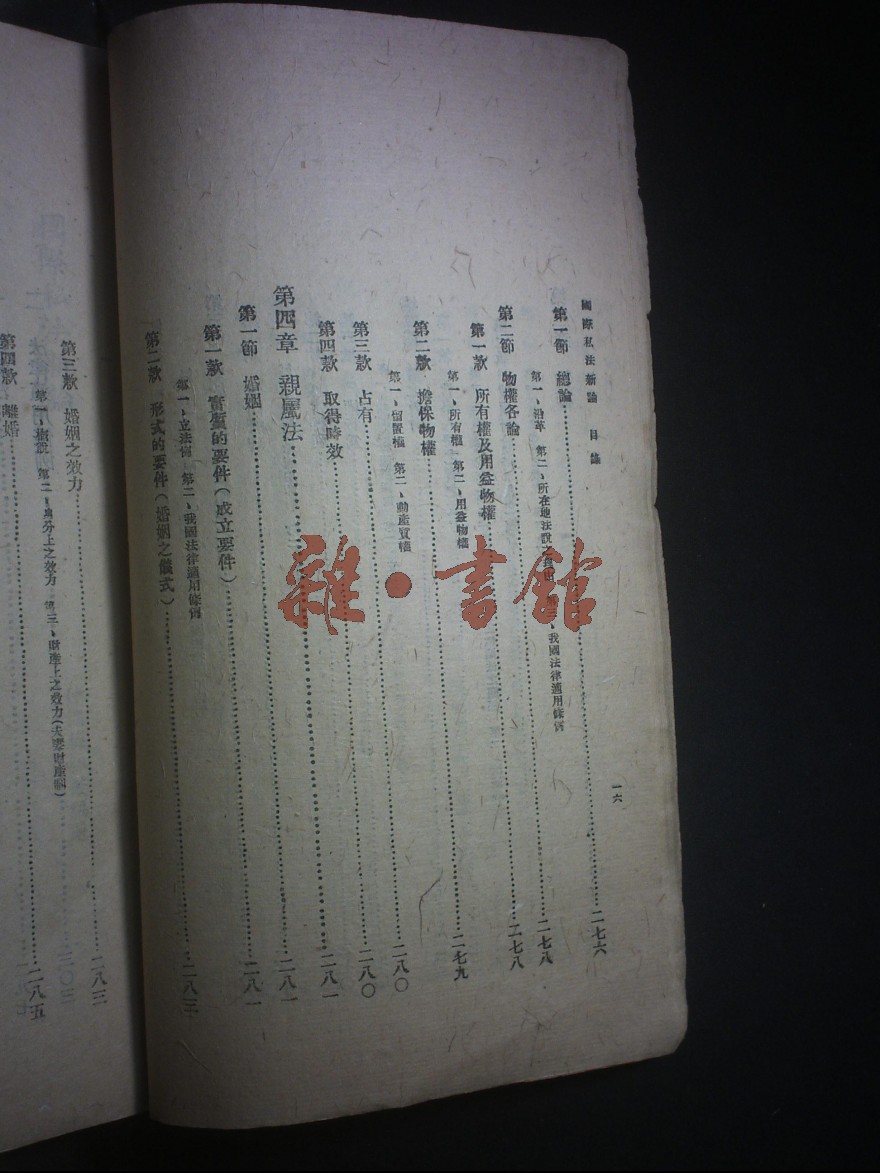 國際私法新論 目錄
一六
第一節 總論……二七六
第一、沿革 第二、所在地法說之 、我國法律適用條例
第二節 物權各論……二七八
第一款 所有權及用益物權……二七八
第一、所有權 第二、用益物權
第二款 擔保物權……二七九
第一、留置權 第二、動產質權
第三款 占有……二八〇
第四款 取得時效……二八〇
第四章 親屬法……二八一
第一節 婚姻……二八一
第一款 實質的要件(成立要件)……二八一
第一、立法例 第二、我國法律適用條例
第二款 形式的要件(婚姻之儀式)……二八三
第三款 婚姻之效力……二八三
第一、概說 第二、身分上之效力 第三、財產上之效力(夫妻財產制)
第四款 離婚……二八五
雜·書館